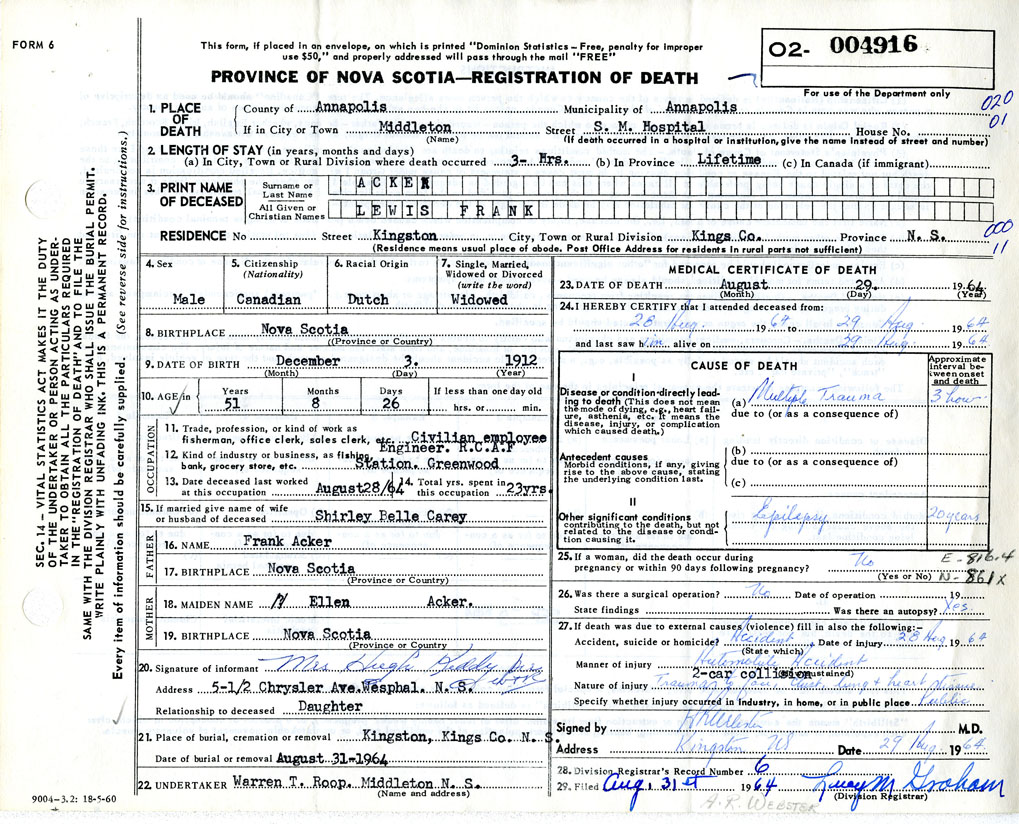 FORM 6
This form, if placed in an envelope, on which is printed "Dominion Statistics – Free, penalty for improper
use $50," and properly addressed will pass through the mail "FREE"
PROVINCE OF NOVA SCOTIA—REGISTRATION OF DEATH
02- 004916
For use of the Department only
020
01
1. PLACE OF DEATH
County of Annapolis Municipality of Annapolis
If in City or Town Middleton Street S. M. Hospital House No.
(Name) (If death occurred in a hospital or institution, give the name instead of street and number)
2. LENGTH OF STAY (in years, months and days)
(a) In City, Town or Rural Division where death occurred 3- Hrs. (b) In Province Lifetime (c) In Canada (if immigrant)
3. PRINT NAME OF DECEASED
Surname or Last Name ACKER
All Given or Christian Names LEWIS FRANK
RESIDENCE No Street Kingston City, Town or Rural Division Kings Co. Province N. S.
(Residence means usual place of abode. Post Office Address for residents in rural parts not sufficient)
000
11
4. Sex
Male
5. Citizenship
(Nationality)
Canadian
6. Racial Origin
Dutch
7. Single, Married, Widowed or Divorced
(write the word)
Widowed
8. BIRTHPLACE Nova Scotia
((Province or Country)
9. DATE OF BIRTH December 3. 1912
(Month) (Day) (Year)
10. AGE in Years Months Days If less than one day old
51 8 26 hrs. or min.
OCCUPATION
11. Trade, profession, or kind of work as
fisherman, office clerk, sales clerk, etc. Civilian employee
12. Kind of industry or business, as fishing, Engineer. R.C.A.F
bank, grocery store, etc. Station. Greenwood
13. Date deceased last worked
at this occupation August28/64
14. Total yrs. spent in
this occupation 23yrs.
15. If married give name of wife
or husband of deceased Shirley Belle Carey
FATHER
16. NAME Frank Acker
17. BIRTHPLACE Nova Scotia
(Province or Country)
MOTHER
18. MAIDEN NAME Ellen Acker.
19. BIRTHPLACE Nova Scotia
(Province or Country
20. Signature of informant Mrs Hugh
Address 5-1/2 Chrysler Ave.Wesphal. N. S.
Relationship to deceased Daughter
21. Place of burial, cremation or removal Kingston, Kings Co. N. S.
Date of burial or removal August 31-1964
22. UNDERTAKER Warren T. Roop. Middleton N. S.
(Name and address)
MEDICAL CERTIFICATE OF DEATH
23. DATE OF DEATH August 29. 1964
(Month) (Day) (Year)
24. I HEREBY CERTIFY that I attended deceased from:
28 Aug. 1964 to 29 Aug. 1964
and last saw him alive on 29 Aug. 1964
CAUSE OF DEATH
Approximate interval between onset and death
I
Disease or condition directly leading
to death (This does not mean
the mode of dying, e.g., heart failure,
asthenia, etc. It means the
disease, injury, or complication
which caused death.)
(a) Multiple Trauma 3 hour
due to (or as a consequence of)
Antecedent causes
Morbid conditions, if any, giving
rise to the above cause, stating
the underlying condition last.
(b)
due to (or as a consequence of)
(c)
II
Other significant conditions
contributing to the death, but not
related to the disease or condition
causing it.
Epilepsy 20 years
25. If a woman, did the death occur during
pregnancy or within 90 days following pregnancy? No
(Yes or No)
E-816.4
N-861X
26. Was there a surgical operation? No Date of operation 19
State findings Was there an autopsy? Yes
27. If death was due to external causes (violence) fill in also the following:-
Accident, suicide or homicide? Accident Date of injury 28 Aug 1964
(State which)
Manner of injury Automobile Accident
2-car collision (sustained)
Nature of injury Trauma to jaw, chest, lung + heart
Specify whether injury occurred in industry, in home, or in public place Public
Signed by M.D.
Address Kingston NS Date 29 Aug. 1964
28. Division Registrar's Record Number 6
29. Filed Aug. 31st 1964 Lucy M Graham
(Division Registrar)
A. R. WEBSTER
9004–3.2: 18-5-60
SEC. 14 – VITAL STATISTICS ACT MAKES IT THE DUTY
OF THE UNDERTAKER OR PERSON ACTING AS UNDER-
TAKER TO OBTAIN ALL THE PARTICULARS REQUIRED
IN THE "REGISTRATION OF DEATH" AND TO FILE THE
SAME WITH THE DIVISION REGISTRAR WHO SHALL ISSUE THE BURIAL PERMIT.
WRITE PLAINLY WITH UNFADING INK. THIS IS A PERMANENT RECORD.
Every item of information should be carefully supplied. (See reverse side for instructions.)